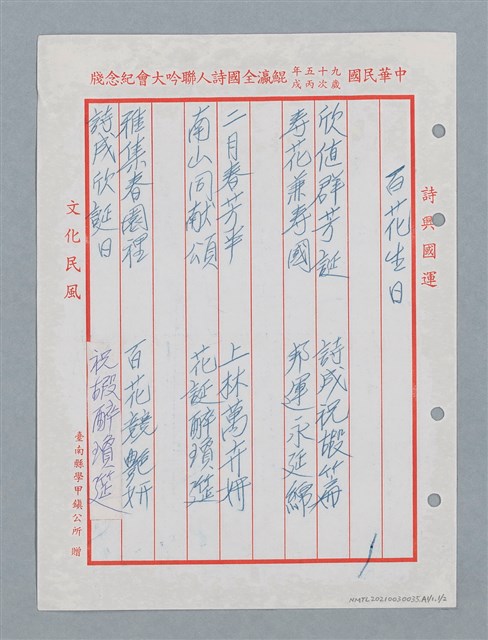 中華民國九十五年歲次丙戌鯤瀛全國詩人聯吟大會紀念牋
詩興國運
百花生日
欣值群芳誕 詩成祝嘏篇
寿花兼寿國 邦運永延綿
二月春芳半 上林萬卉妍
南山同献頌 花誕醉瓊筵
雅集春園裡 百花競艷妍
詩成欣誕日 祝嘏醉瓊筵
文化民風
臺南縣學甲鎮公所 贈
NMTL20210030035.A1/1.1/2